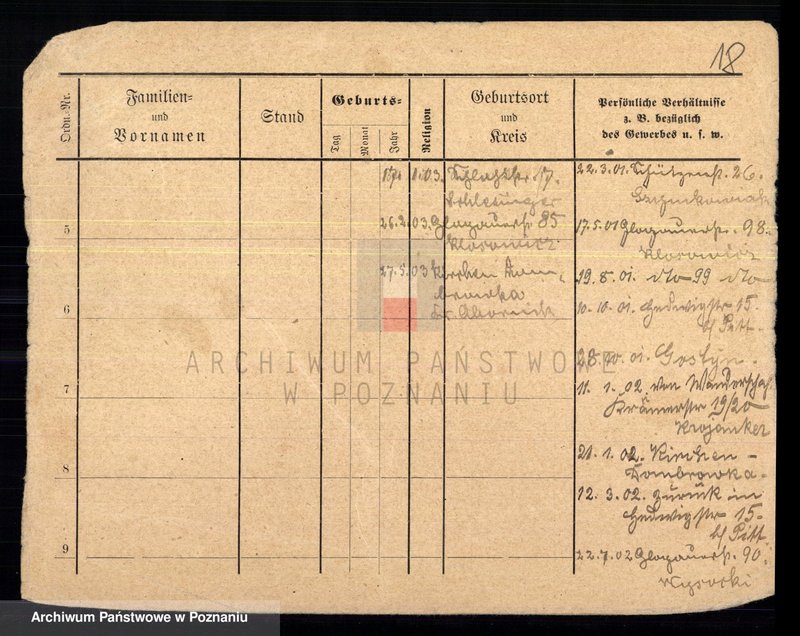 18
Ordn.-Nr.
Familien=
und
Vornamen
Stand
Geburts=
Tag
Monat
Jahr
Religion
Geburtsort
und
Kreis
Persönliche Verhältnisse
z. B. bezüglich
des Gewerbes u. s. w.
5
6
7
8
9
1.03. 17.
Schlesinger
26.2.03. Glogauerstr. 85
Klosowicz
27.5.03 Kirchen Dom-
browka
22.3.01. Schützenstr. 26.
17.5.01 Glogauerstr. 98.
Klosowicz
19.8.01. dto 99 dto
10.10.01. Hedwigstr 15.
b/ Pitt.
28.10.01. Gostyn.
11.1.02. von Wanderschaft
Krämerstr 19/20
Krojanker
21.1.02. Kirchen-
Dombrowka.
12.3.02. zurück in
Hedwigstr 15.
b/ Pitt.
22.7.02 Glogauerstr. 90.
Wysocki
ARCHIWUM PAŃSTWOWE
W POZNANIU
Archiwum Państwowe w Poznaniu